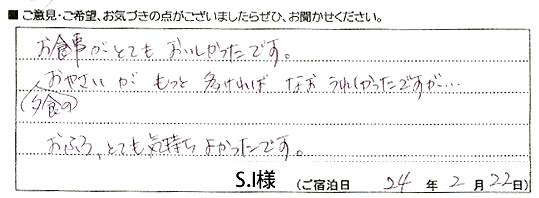 ■ ご意見・ご希望、お気づきの点がございましたらぜひ、お聞かせください。
お食事がとても おいしかったです。
おやさいが もっと 多ければ なお うれしかったですが…
(夕食の)
おふろ、とても気持ちよかったです。
S.I様 (ご宿泊日 24 年 2 月 22 日)